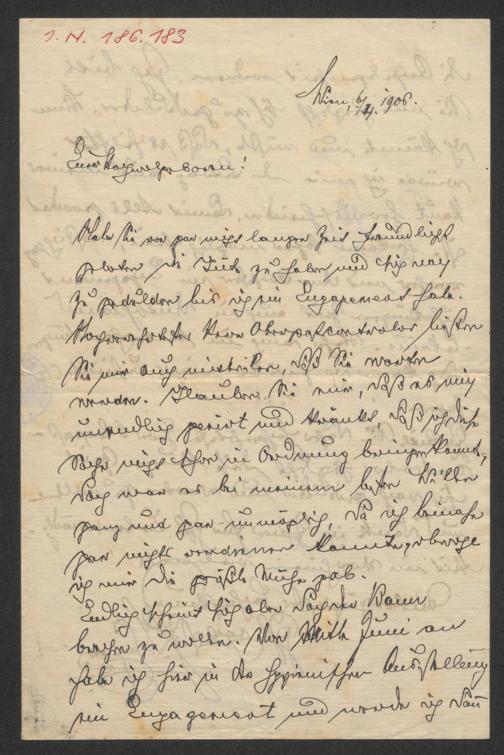 J. N. 186.183
Wien, 6/4. 1906.
Euer Hochwohlgeboren!
Habe Sie vor gar nicht langer Zeit freundlichst
gebeten die Güte zu haben und sich noch
zu gedulden bis ich ein Engagement habe.
Hochverehrtester Herr Oberpostcontrolor ließen
Sie mir auch mitteilen, daß Sie warten
werden. Glauben Sie mir, daß es mich
unendlich geniert und kränkt, daß ich diese
Sache nicht schon in Ordnung bringen konnte,
doch war es bei meinem besten Willen
ganz und gar unmöglich, da ich beinahe
gar nichts verdienen konnte, obwohl
ich mir die größte Mühe gab.
Endlich scheint sich aber doch der Bann
brechen zu wollen. Von Mitte Juni an
habe ich hier in der hygienischen Ausstellung
ein Engagement und werde ich dann